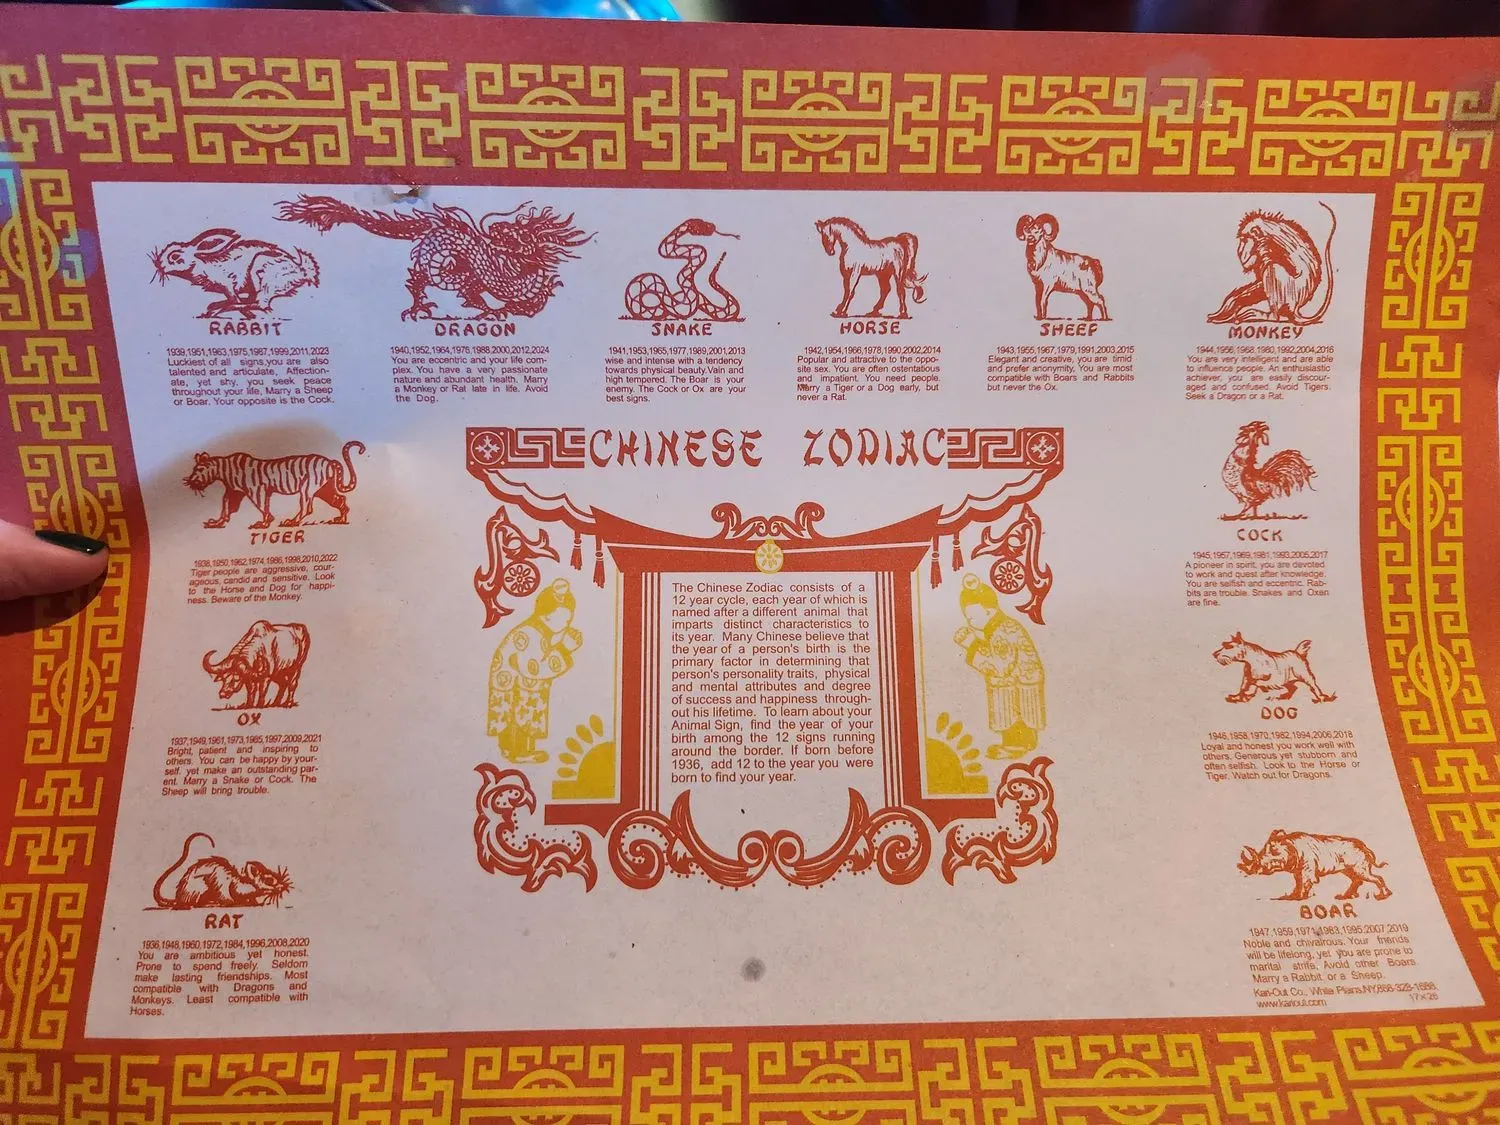 RABBIT
1939,1951,1963,1975,1987,1999,2011,2023
Luckiest of all signs,you are also
talented and articulate, Affection-
ate, yet shy, you seek peace
throughout your life, Marry a Sheep
or Boar. Your opposite is the Cock.
DRAGON
1940,1952,1964,1976,1988,2000,2012,2024
You are eccentric and your life com-
plex. You have a very passionate
nature and abundant health. Marry
a Monkey or Rat late in life. Avoid
the Dog.
SNAKE
1941,1953,1965,1977,1989,2001,2013
wise and intense with a tendency
towards physical beauty.Vain and
high tempered. The Boar is your
enemy. The Cock or Ox are your
best signs.
HORSE
1942,1954,1966,1978,1990,2002,2014
Popular and attractive to the oppo-
site sex. You are often ostentatious
and impatient. You need people.
Marry a Tiger or a Dog early, but
never a Rat.
SHEEP
1943,1955,1967,1979,1991,2003,2015
Elegant and creative, you are timid
and prefer anonymity, You are most
compatible with Boars and Rabbits
but never the Ox.
MONKEY
1944,1956,1968,1980,1992,2004,2016
You are very intelligent and are able
to influence people. An enthusiastic
achiever, you are easily discour-
aged and confused. Avoid Tigers.
Seek a Dragon or a Rat.
CHINESE ZODIAC
TIGER
1938,1950,1962,1974,1986,1998,2010,2022
Tiger people are aggressive, cour-
ageous, candid and sensitive. Look
to the Horse and Dog for happi-
ness. Beware of the Monkey.
COCK
1945,1957,1969,1981,1993,2005,2017
A pioneer in spirit, you are devoted
to work and quest after knowledge.
You are selfish and eccentric. Rab-
bits are trouble. Snakes and Oxen
are fine.
The Chinese Zodiac consists of a
12 year cycle, each year of which is
named after a different animal that
imparts distinct characteristics to
its year. Many Chinese believe that
the year of a person's birth is the
primary factor in determining that
person's personality traits, physical
and mental attributes and degree
of success and happiness through-
out his lifetime. To learn about your
Animal Sign, find the year of your
birth among the 12 signs running
around the border. If born before
1936, add 12 to the year you were
born to find your year.
OX
1937,1949,1961,1973,1985,1997,2009,2021
Bright, patient and inspiring to
others. You can be happy by your-
self, yet make an outstanding par-
ent. Marry a Snake or Cock. The
Sheep will bring trouble.
DOG
1946,1958,1970,1982,1994,2006,2018
Loyal and honest you work well with
others. Generous yet stubborn and
often selfish. Look to the Horse or
Tiger. Watch out for Dragons.
RAT
1936,1948,1960,1972,1984,1996,2008,2020
You are ambitious yet honest.
Prone to spend freely. Seldom
make lasting friendships. Most
compatible with Dragons and
Monkeys. Least compatible with
Horses.
BOAR
1947,1959,1971,1983,1995,2007,2019
Noble and chivalrous. Your friends
will be lifelong, yet you are prone to
marital strife, Avoid other Boars.
Marry a Rabbit or a Sheep.
Kari-Out Co., White Plains,NY,866-328-1688,
www.kariout.com 17 x 26